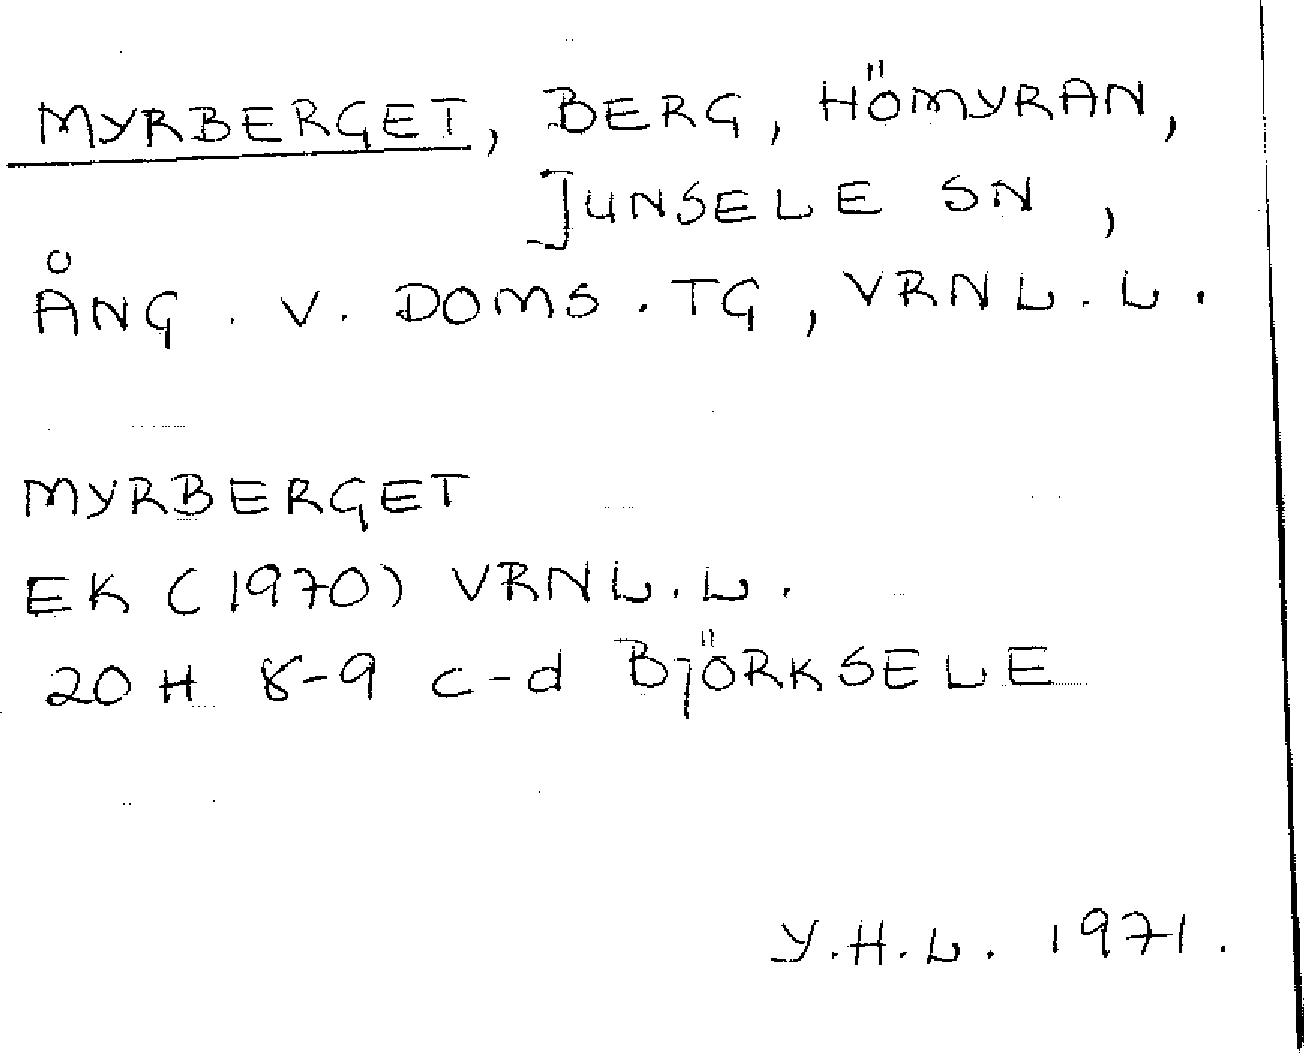 MYRBERGET, BERG, HÖMYRAN,
JUNSELE SN,
ÅNG. V. DOMS. TG, VRNL.L.
MYRBERGET
EK (1970) VRNL.L.
20 H 8-9 c-d BJÖRKSELE
Y.H.L. 1971.